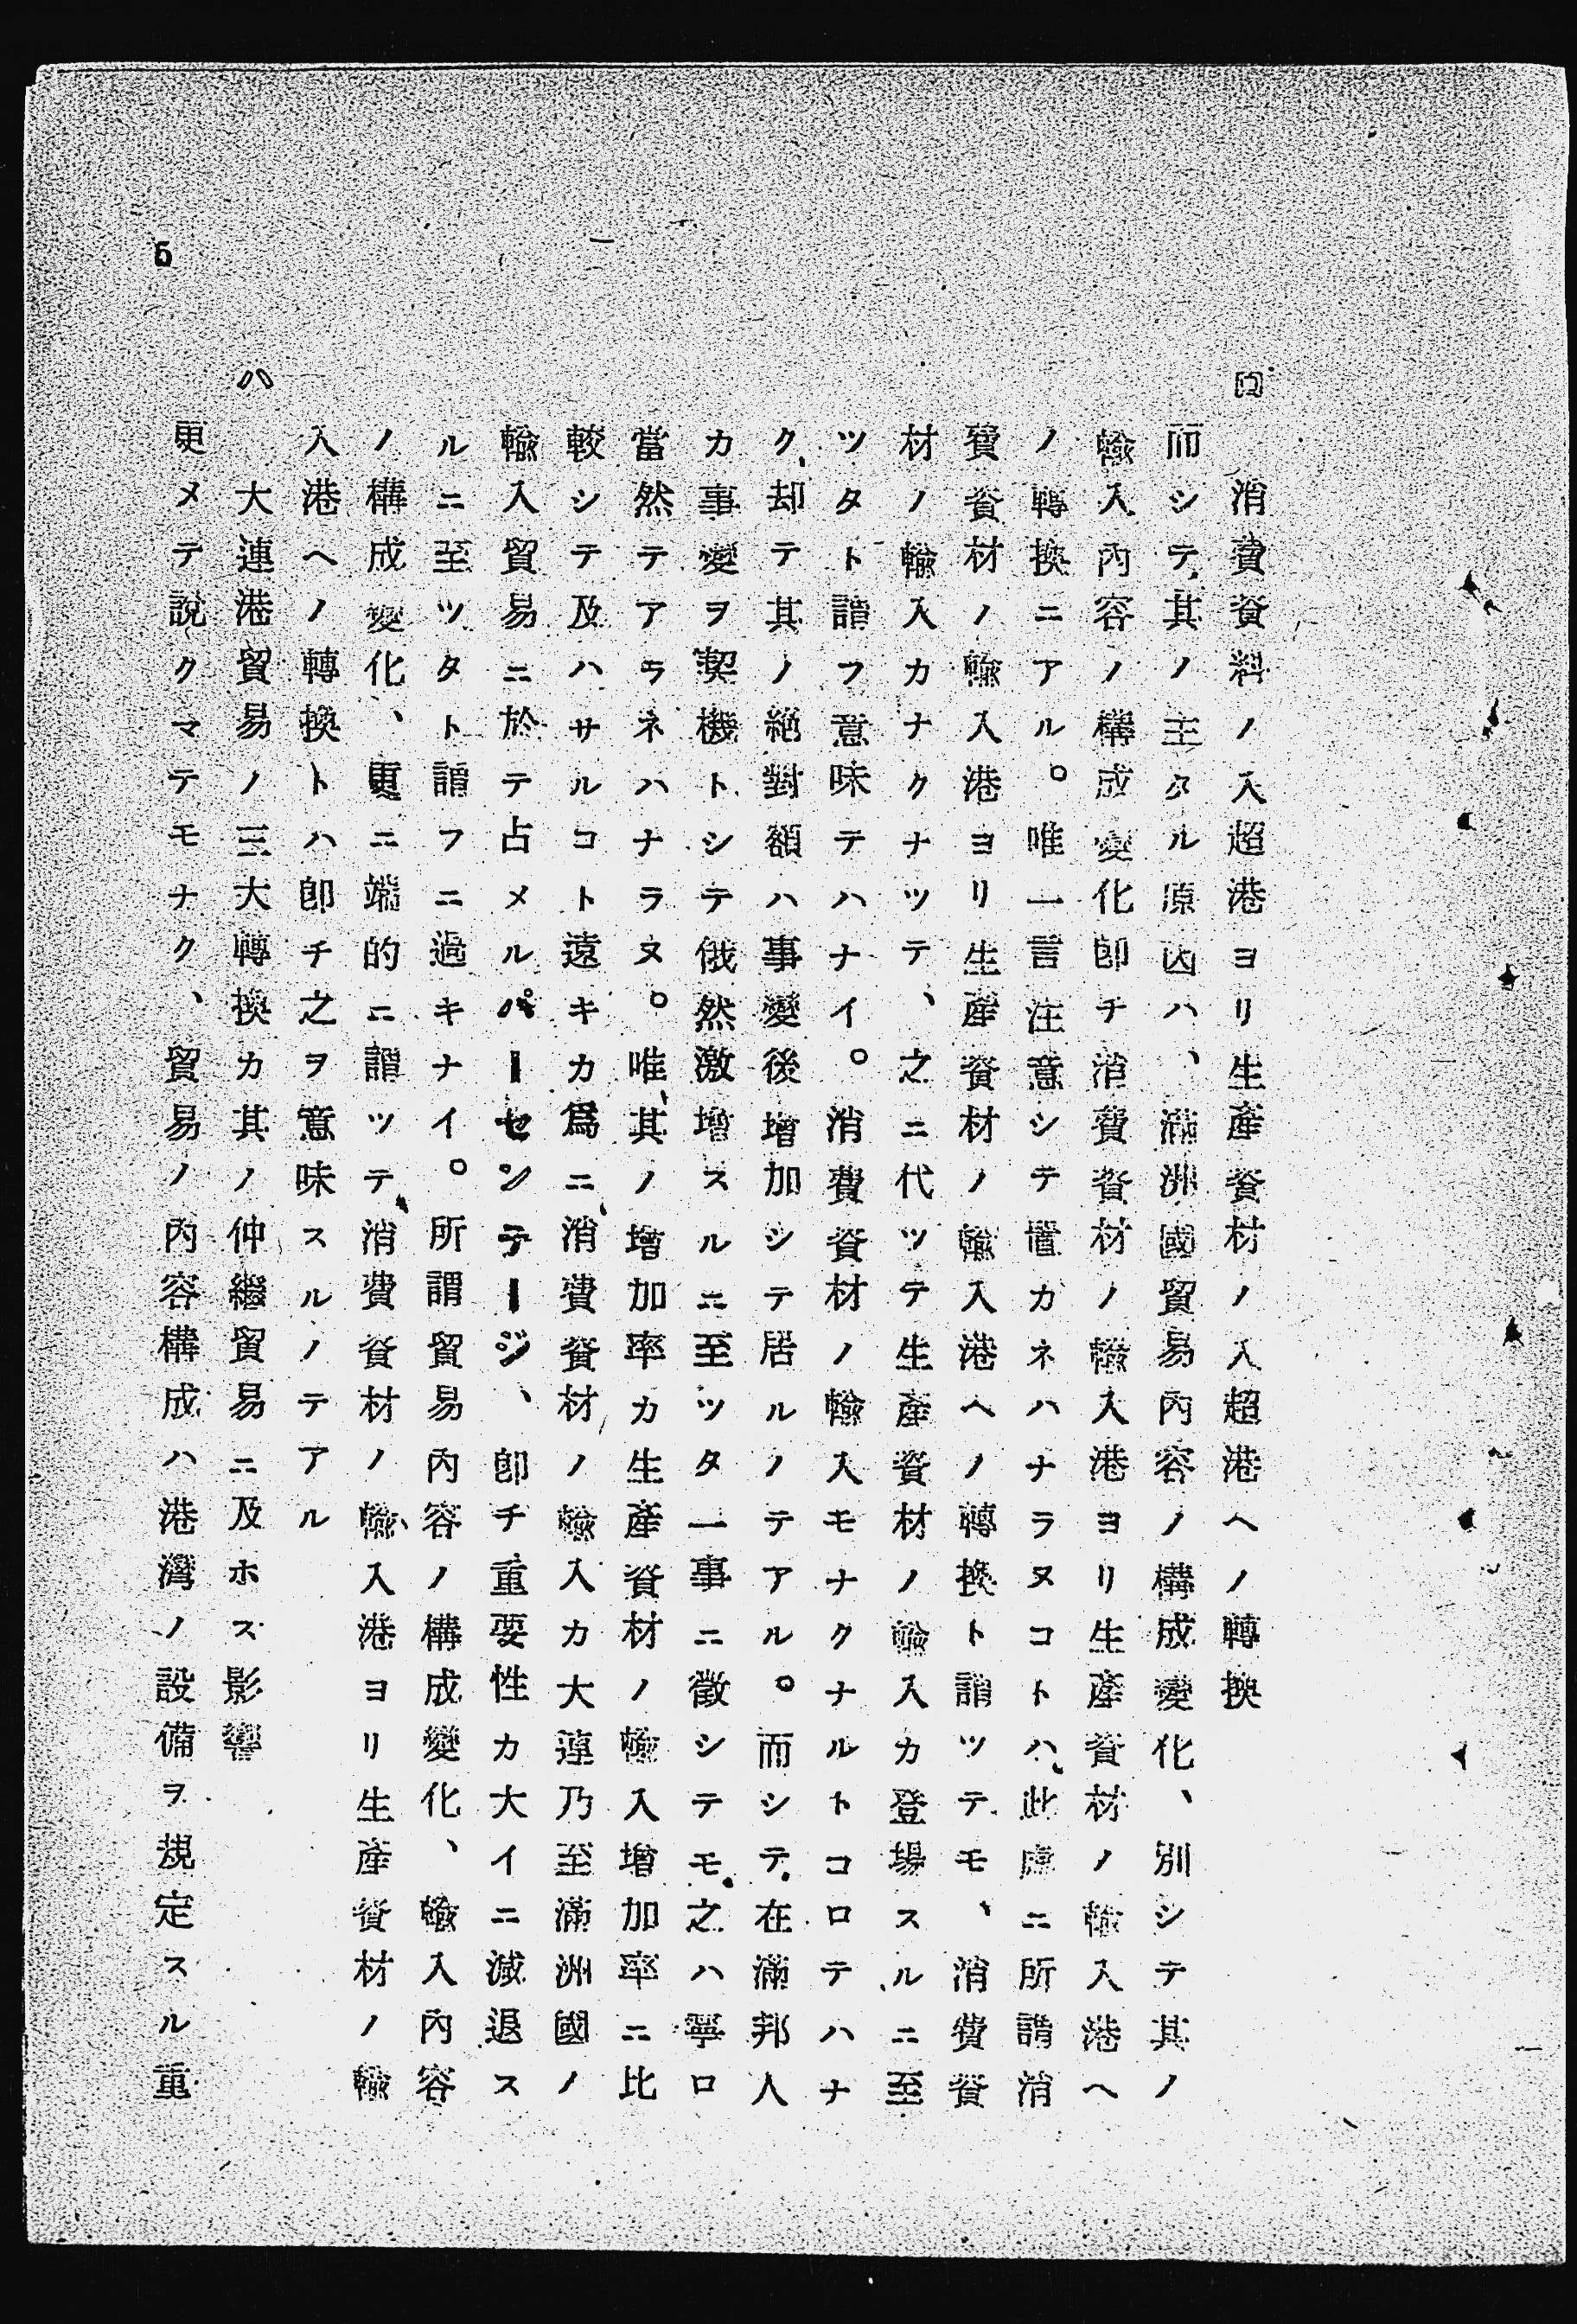 ロ　消費資料ノ入超港ヨリ生產資材ノ入超港ヘノ轉換
而シテ其ノ主タル原因ハ、滿洲國貿易內容ノ構成變化、別シテ其ノ
輸入內容ノ構成變化卽チ消費資材ノ輸入港ヨリ生產資材ノ輸入港ヘ
ノ轉換ニアル。唯一言注意シテ置カネハナラヌコトハ、此處ニ所謂消
費資材ノ輸入港ヨリ生產資材ノ輸入港ヘノ轉換ト謂ツテモ、消費資
材ノ輸入カナクナツテ、之ニ代ツテ生產資材ノ輸入カ登場スルニ至
ツタト謂フ意味テハナイ。消費資材ノ輸入モナクナルトコロテハナ
ク、却テ其ノ絕對額ハ事變後增加シテ居ルノテアル。而シテ在滿邦人
カ事變ヲ契機トシテ俄然激增スルニ至ツタ一事ニ徵シテモ之ハ寧ロ
當然テアラネハナラヌ。唯、其ノ增加率カ生產資材ノ輸入增加率ニ比
較シテ及ハサルコト遠キカ爲ニ、消費資材ノ輸入カ大連乃至滿洲國ノ
輸入貿易ニ於テ占メルパーセンテージ、卽チ重要性カ大イニ減退ス
ルニ至ツタト謂フニ過キナイ。所謂貿易內容ノ構成變化、輸入內容
ノ構成變化、更ニ端的ニ謂ツテ、消費資材ノ輸入港ヨリ生產資材ノ輸
入港ヘノ轉換トハ卽チ之ヲ意味スルノテアル
ハ　大連港貿易ノ三大轉換カ其ノ仲繼貿易ニ及ホス影響
更メテ說クマテモナク、貿易ノ內容構成ハ港灣ノ設備ヲ規定スル重
5